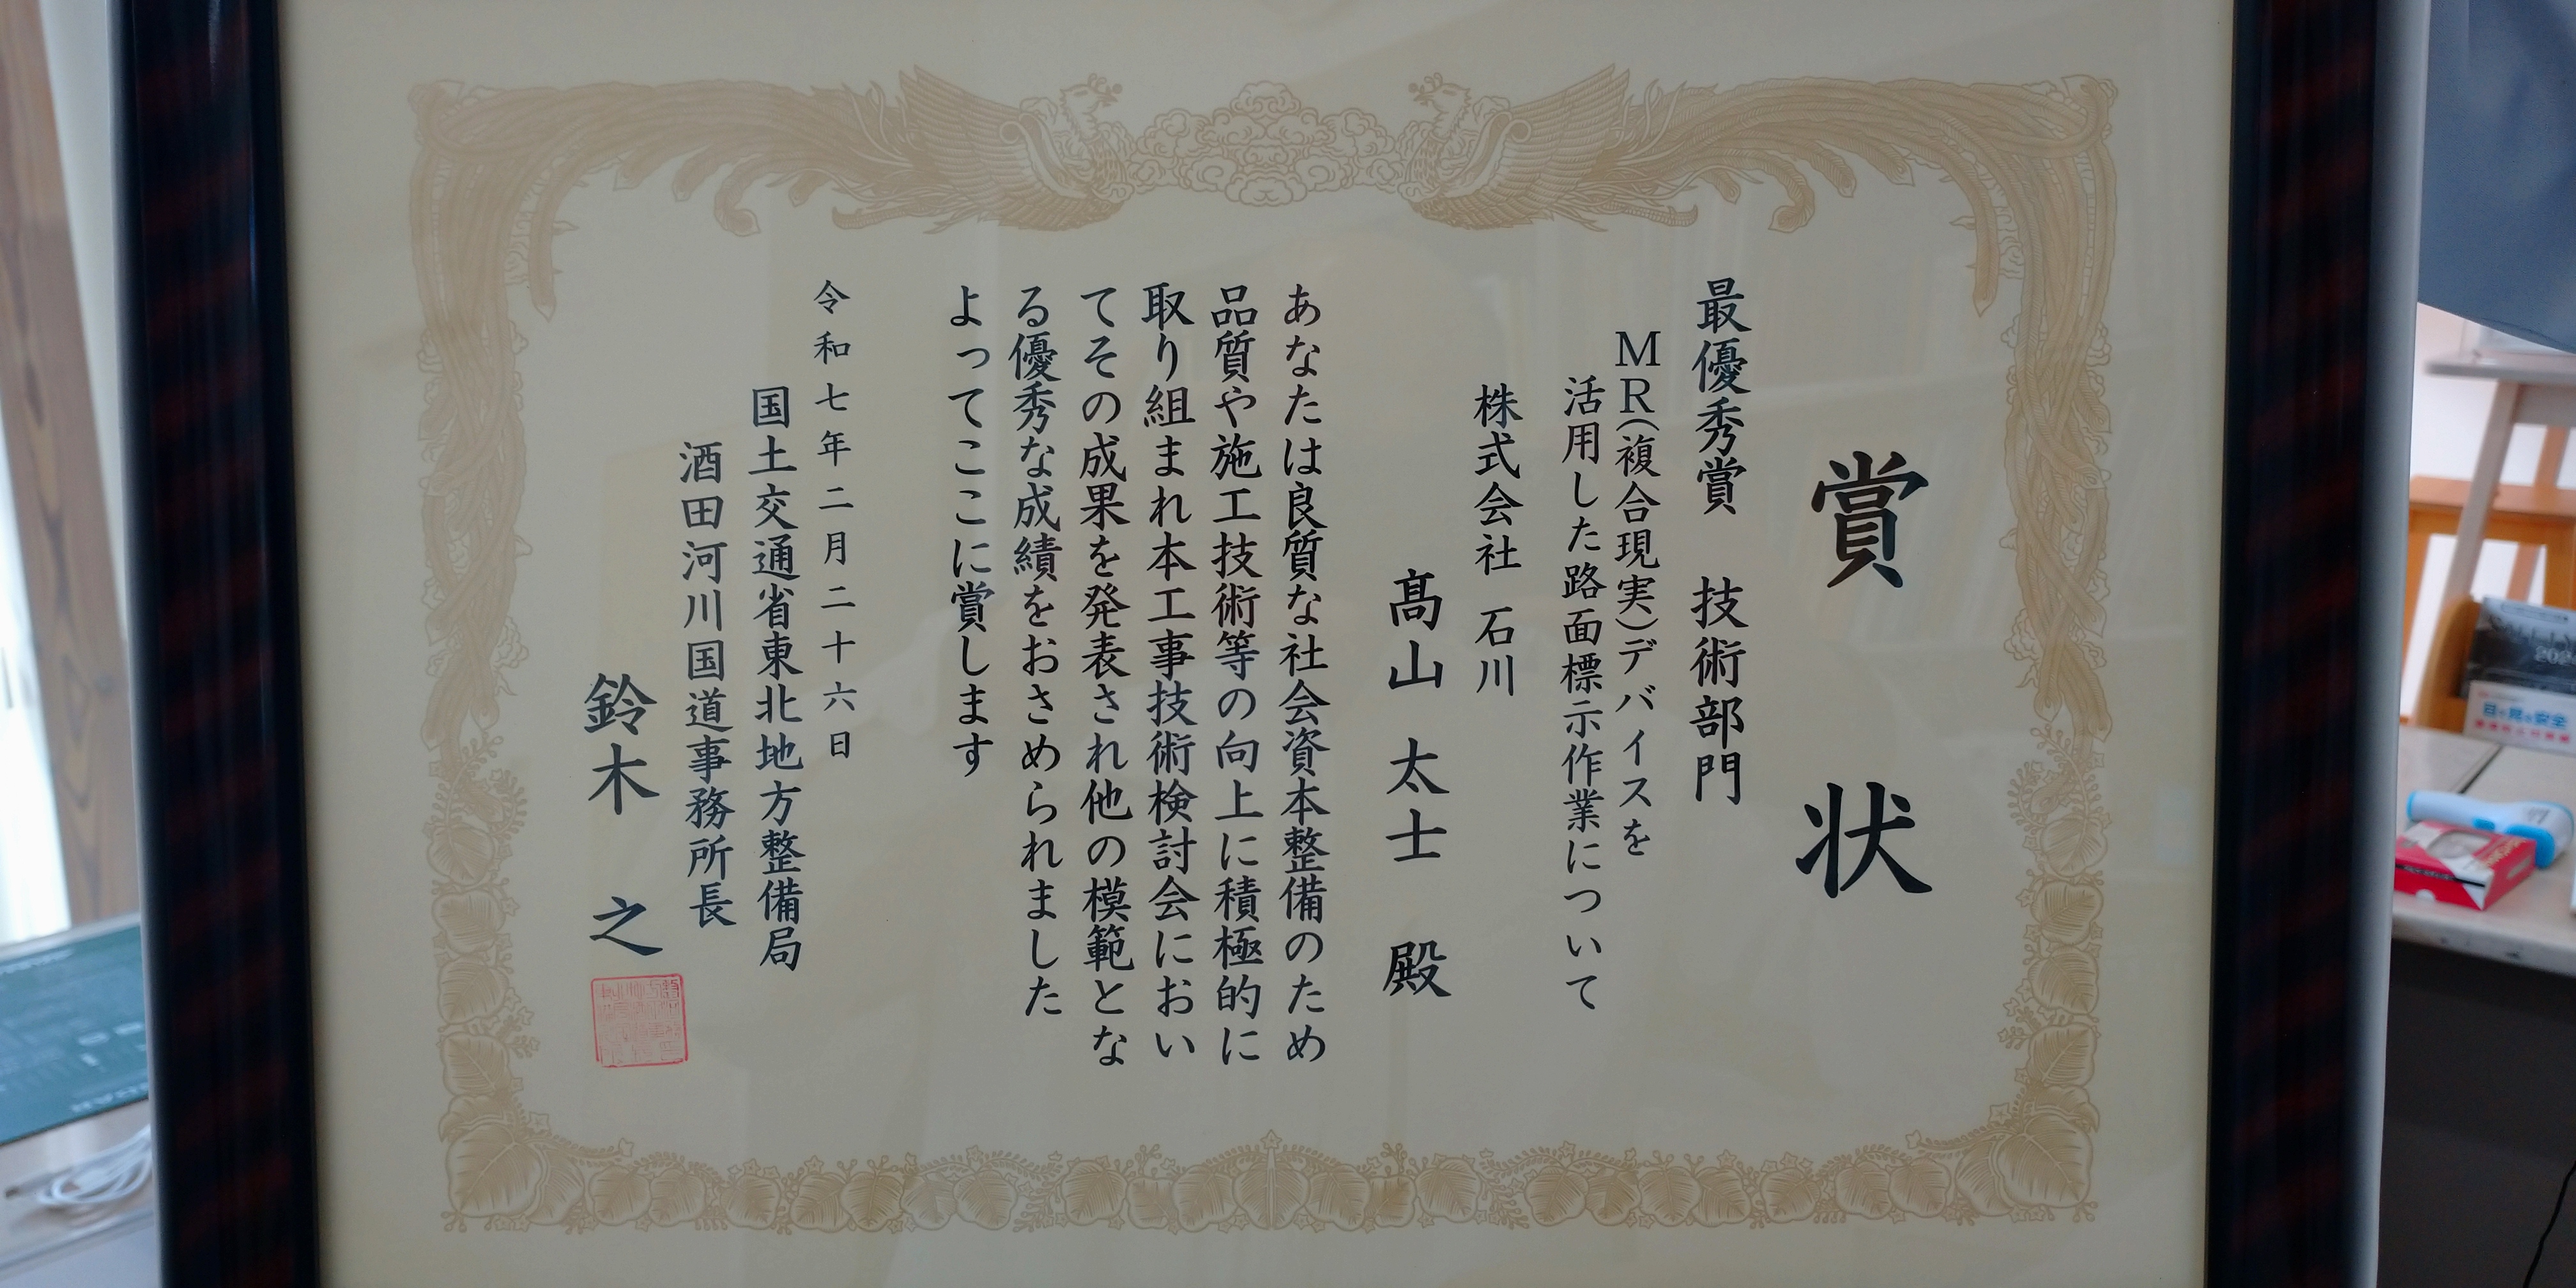 賞状
最優秀賞　技術部門
MR(複合現実)デバイスを
活用した路面標示作業について
株式会社 石川
髙山　太士　殿
あなたは良質な社会資本整備のため
品質や施工技術等の向上に積極的に
取り組まれ本工事技術検討会におい
てその成果を発表され他の模範とな
る優秀な成績をおさめられました
よってここに賞します
令和七年二月二十六日
国土交通省東北地方整備局
酒田河川国道事務所長
鈴木　之